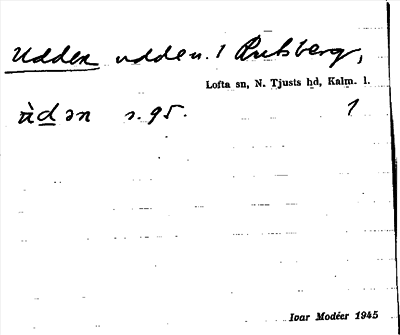 Udden udde u. 1 Rutsberg,
Lofta sn, N. Tjusts hd, Kalm. l.
ùdən s. 95. 1
Ivar Modéer 1945